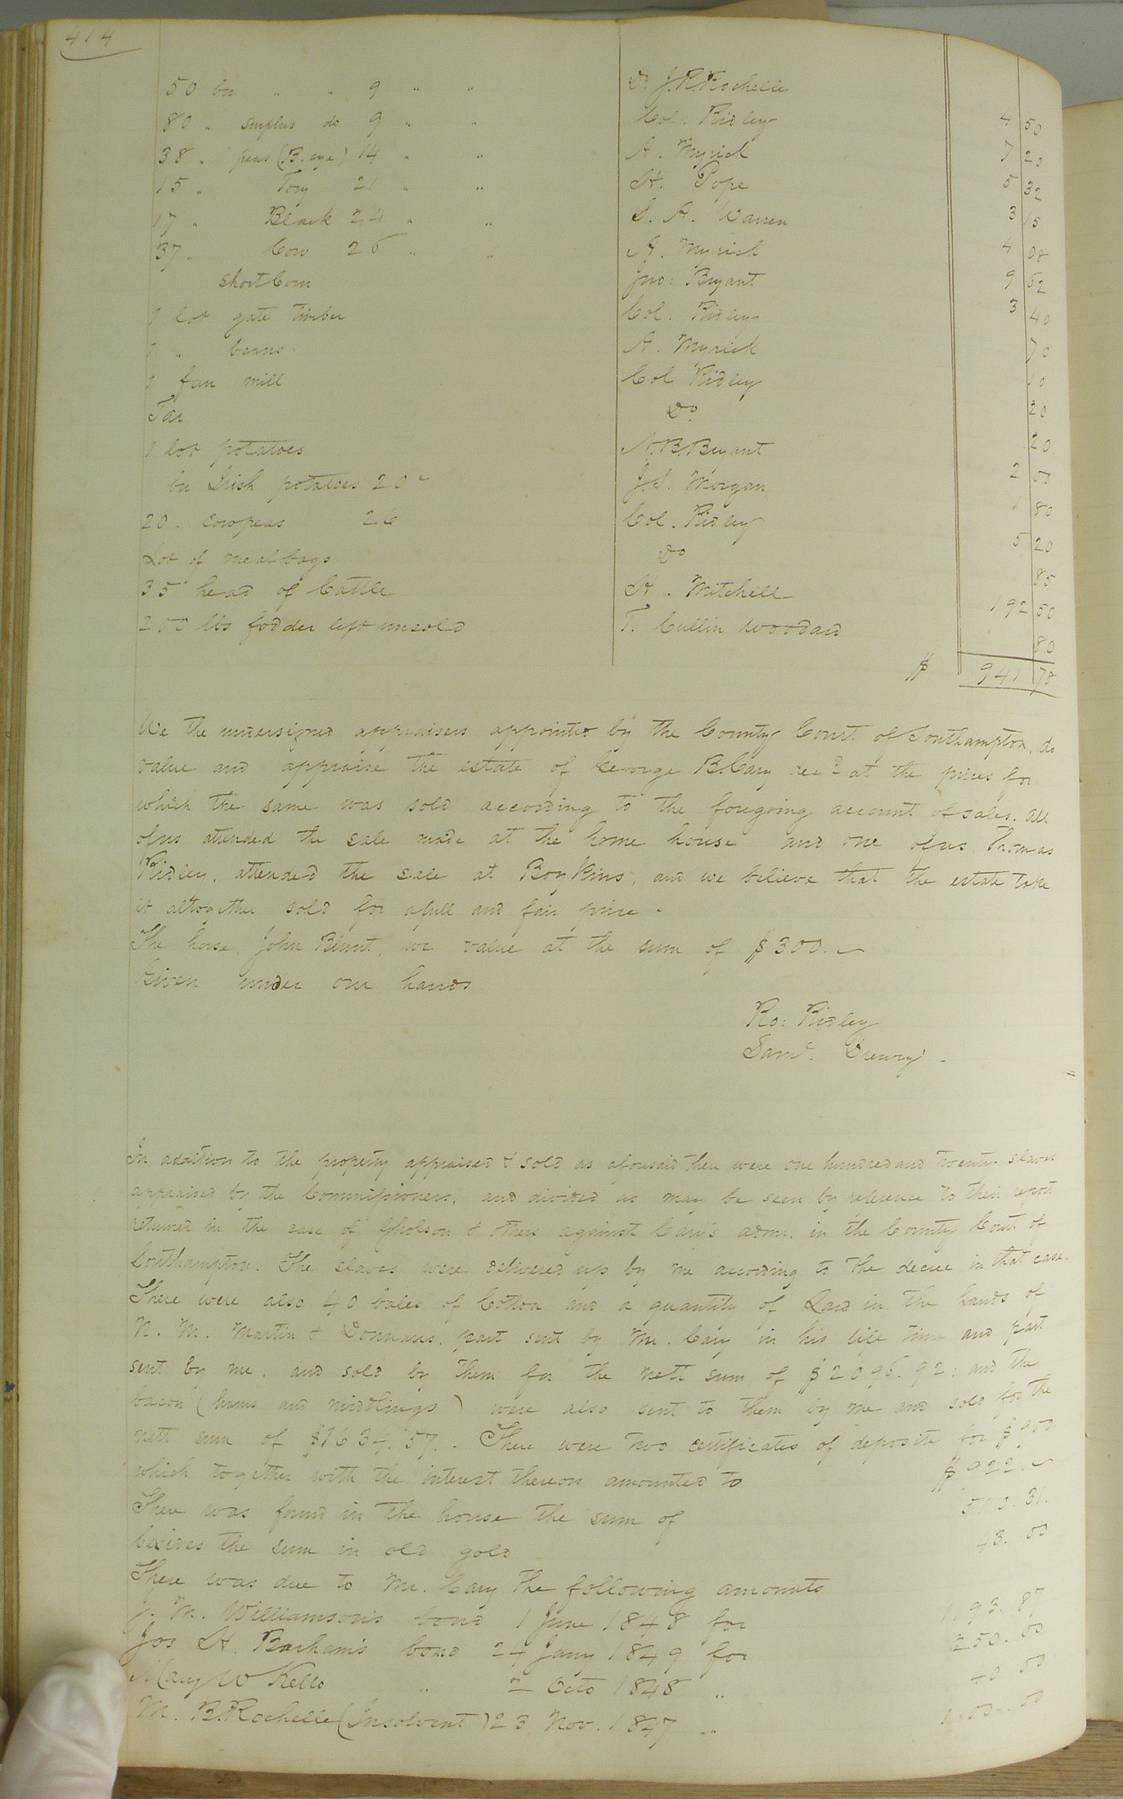 414
50 bu " " 9 " " Do J. R. Rochelle 4 50
80 " surplus do 9 " " Col. Ridley 7 20
38 " peas (B. eye) 14 " " A. Myrick 5 32
15 " Tory 21 " " H. Pope 3 15
17 " Black 24 " " S. A. Warren 4 08
37 " Cow 26 " " A. Myrick 9 62
Short Corn Jno: Bryant 3 40
1 lot gate timber Col. Ridley 70
1 " beans A. Myrick 10
1 fan mill Col Ridley 20
Tar Do 20
1 lot potatoes A. B. Bryant 2 00
bu Irish potatoes 20c J. S. Morgan 1 80
20 " cowpeas 26 Col. Ridley 5 20
Lot of meal bags Do 85
35 head of Cattle A. Mitchell 192 50
200 lbs fodder left unsold T. Cullin Woodard 80
$ 941 78
We the undersigned appraisers appointed by the County Court of Southampton, do
value and appraise the estate of George B. Cary decd at the prices for
which the same was sold according to the foregoing account of sales. All
of us attended the sale made at the home house and one of us Thomas
Ridley, attended the sale at Boykins, and we believe that the estate take
it altogether sold for a full and fair price.
The horse, John Blunt, we value at the sum of $300.
Given under our hands
Ro: Ridley
Saml. Drewry.
In addition to the property appraised & sold as aforesaid there were one hundred and twenty slaves
appraised by the Commissioners, and divided as may be seen by reference to their report
returned in the case of Gholson & others against Cary's admr. in the County Court of
Southampton. The slaves were delivered up by me according to the decree in that case.
There were also 40 bales of Cotton and a quantity of Lard in the hands of
N. M. Martin & Donnans, part sent by Mr. Cary in his life time and part
sent by me, and sold by them for the nett sum of $2096.92; and the
bacon (hams and middlings) were also sent to them by me and sold for the
nett sum of $1634.57. There were two certificates of deposite for $900
which together with the interest thereon amounted to $922.
There was found in the house the sum of 31.
besides the sum in old gold 43.00
There was due to Mr. Cary the following amounts
J. M. Williamson's bond 1 June 1848 for 93.87
Jos H. Barham's bond 24 Jany 1849 for 250.00
Mary W Kello " 2 Octo 1848 " 40 00
M. B. Rochelle (Insolvent) 23 Nov. 1847 "